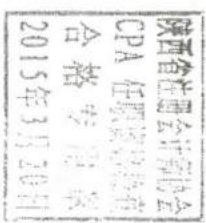 陕西省注册会计师协会
CPA 任职资格
合格专用章
2015年3月30日